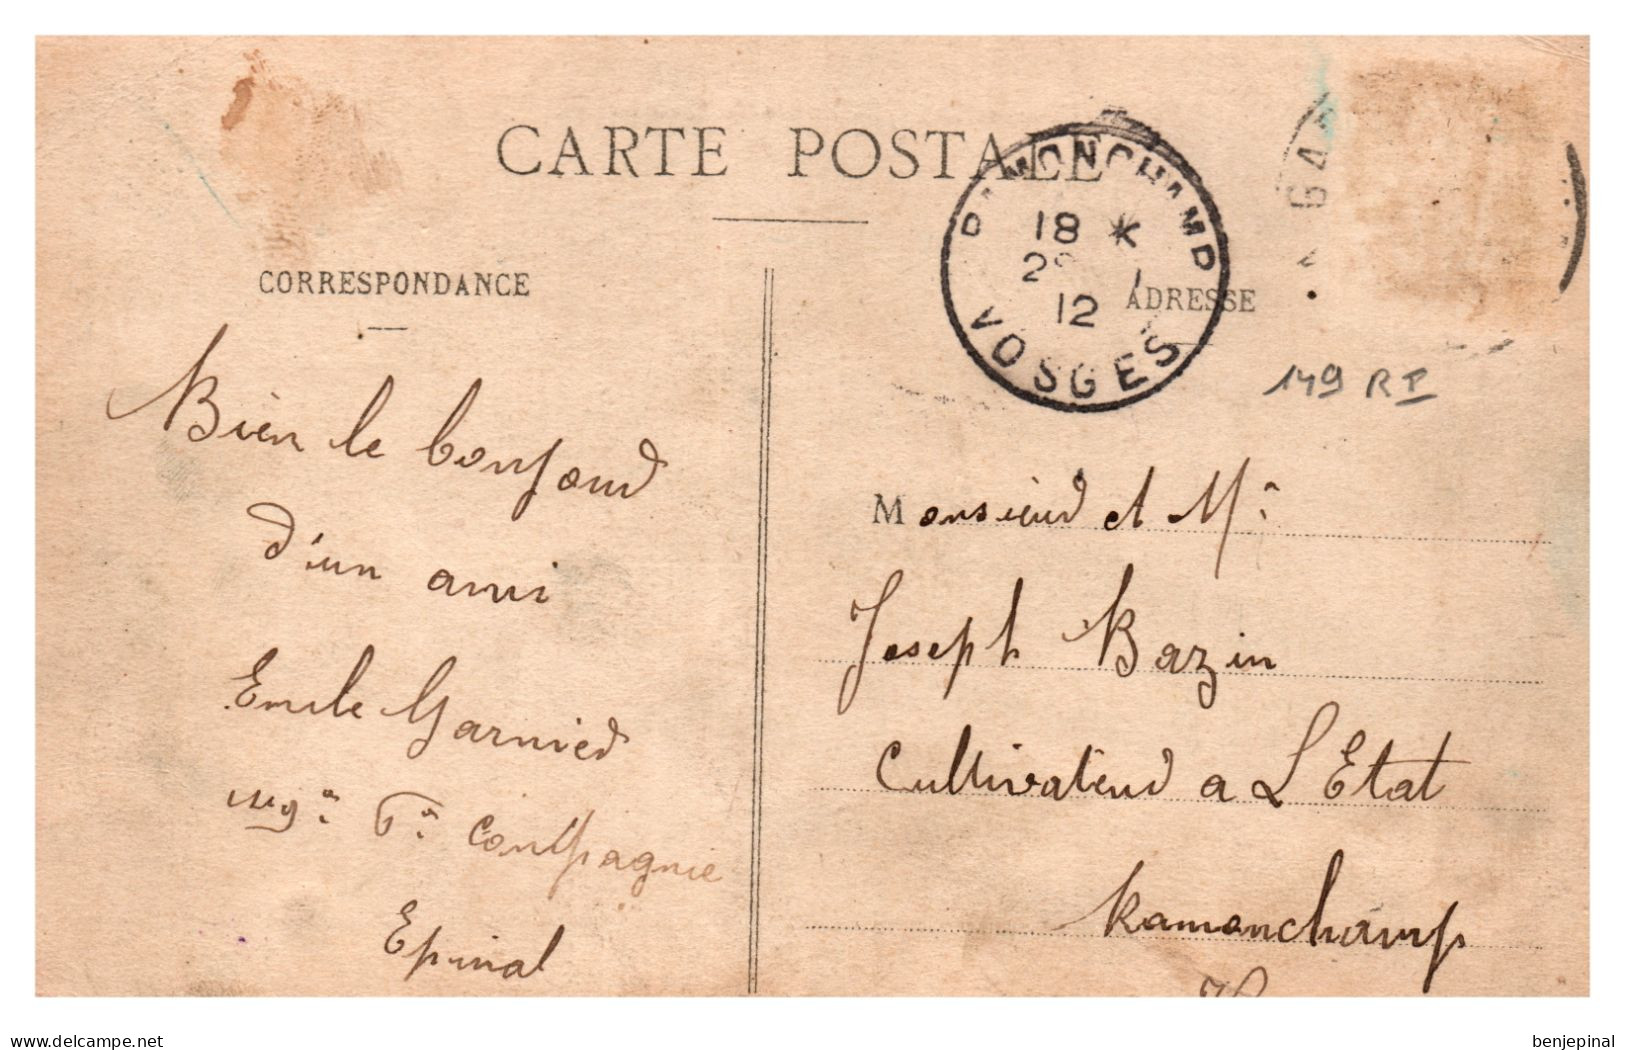 CARTE POSTALE
CORRESPONDANCE
ADRESSE
RAMONCHAMP
18 *
12
VOSGES
GA
149 R I
Bien le bonjour
d'un ami
Emile Garnier
149e 6e Compagnie
Epinal
Monsieur et Me
Joseph Bazin
Cultivateur a L'Etat
Ramonchamp
www.delcampe.net
benjepinal